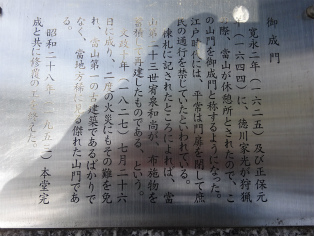 御成門
寛永二年（一六二五）及び正保元
年（一六四四）に、徳川家光が狩猟
の際、當山が休憩所とされたので、こ
の山門を御成門と称するようになった。
江戸時代には、平常は門扉を閉して庶
民の通行を禁じていたといわれている。
棟札に記されたところによれば、當
山第二十三世宥泉和尚が、布施物を
蓄積し再建したものである、という。
文政十年（一八二七）七月二十六
日に成り、二度の火災にもその難を免
れ、當山第一の古建築であるばかりで
なく、當地方稀にみる傑れた山門であ
る。
昭和二十八年（一九五三）本堂完
成と共に修復の